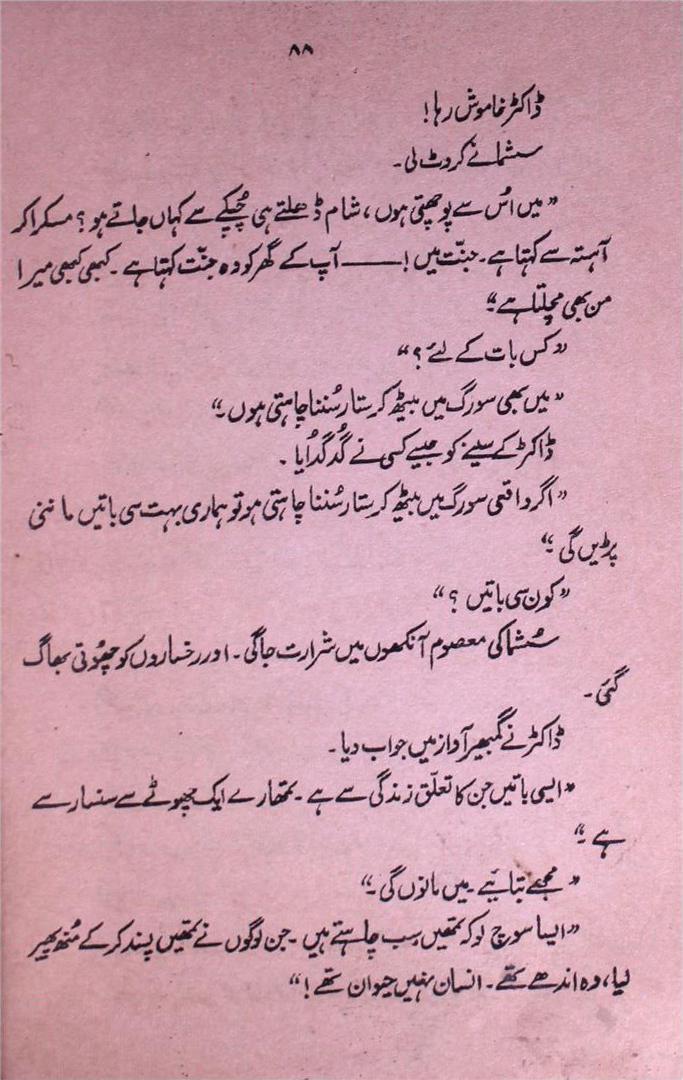 ۸۸
ڈاکٹر خاموش رہا!
سشما نے کروٹ لی۔
”میں اُس سے پوچھتی ہوں، شام ڈھلتے ہی چُپکے سے کہاں جاتے ہو؟ مسکرا کر
آہستہ سے کہتا ہے۔ جنّت میں!——آپ کے گھر کو وہ جنّت کہتا ہے۔ کبھی کبھی میرا
من بھی مچلتا ہے۔“
”کس بات کے لئے؟“
”میں بھی سورگ میں بیٹھ کر ستار سُننا چاہتی ہوں۔“
ڈاکٹر کے سینے کو جیسے کسی نے گُدگُدایا۔
”اگر واقعی سورگ میں بیٹھ کر ستار سُننا چاہتی ہو تو ہماری بہت سی باتیں ماننی
پڑیں گی۔“
”کون سی باتیں؟“
سُشما کی معصوم آنکھوں میں شرارت جاگی۔ اور رخساروں کو چھُوتی بھاگ
گئی۔
ڈاکٹر نے گمبھیر آواز میں جواب دیا۔
”ایسی باتیں جن کا تعلّق زندگی سے ہے۔ تمھارے ایک چھوٹے سے سنسار سے
ہے۔“
”مجھے بتائیے۔ میں مانوں گی۔“
”ایسا سوچ لو کہ تمھیں سب چاہتے ہیں۔ جن لوگوں نے تمھیں پسند کر کے مُنھ پھیر
لیا، وہ اندھے تھے۔ انسان نہیں حیوان تھے!“